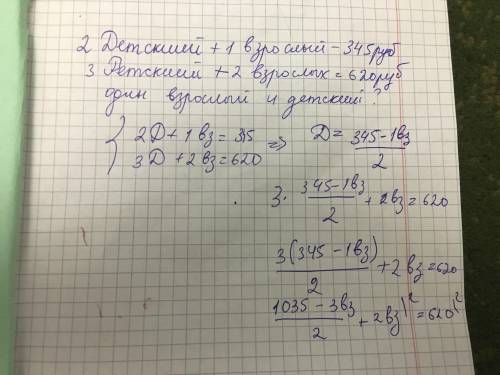 2 Детский + 1 взрослый - 345 руб
3 Детский + 2 взрослых = 620 руб
один взрослый и детский ?
{ 2Д + 1 вз = 345 => Д = (345 - 1вз)/2
3Д + 2вз = 620
3 · (345 - 1вз)/2 + 2вз = 620
3(345 - 1вз)/2 + 2вз = 620
(1035 - 3вз)/2 + 2вз\² = 620\²